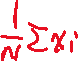 \frac{1}{N} \sum x_i